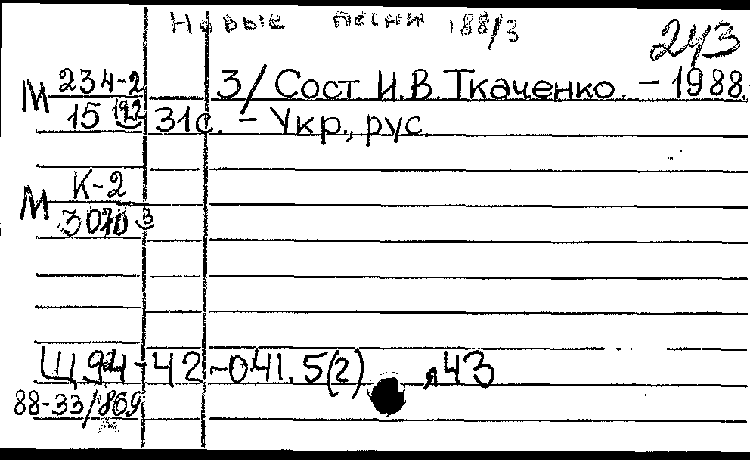 Новые песни 188/3
243
М 234-2 3/ Сост И.В. Ткаченко. - 1988.
15 192 31с. - Укр., рус.
М К-2
3070 3
Щ94-42-041.5(2) я43
88-33/869